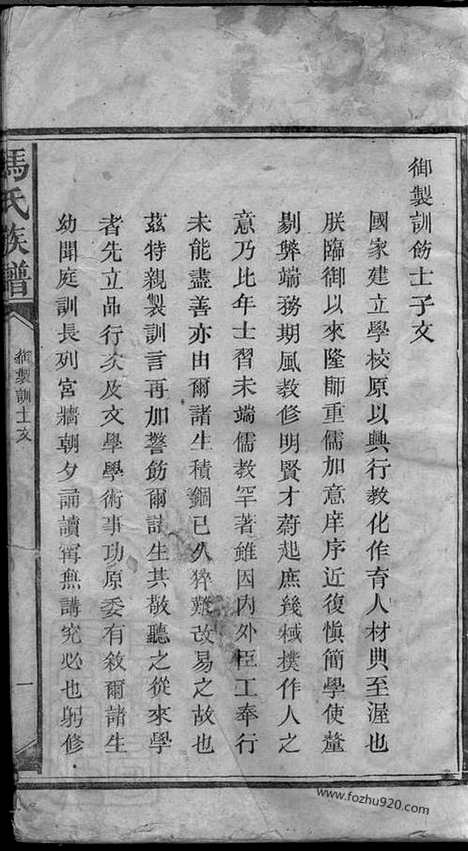 御製訓飭士子文
國家建立學校原以興行教化作育人材典至渥也
朕臨御以來隆師重儒加意庠序近復慎簡學使釐
剔弊端務期風教修明賢才蔚起庶幾棫樸作人之
意乃比年士習未端儒教罕著雖因內外臣工奉行
未能盡善亦由爾諸生積錮已久猝難改易之故也
茲特親製訓言再加警飭爾諸生其敬聽之從來學
者先立品行次及文學學術事功原委有敘爾諸生
幼聞庭訓長列宮牆朝夕誦讀寗無講究必也躬修
馬氏族譜
御製訓士文
一
www.fozhu920.com